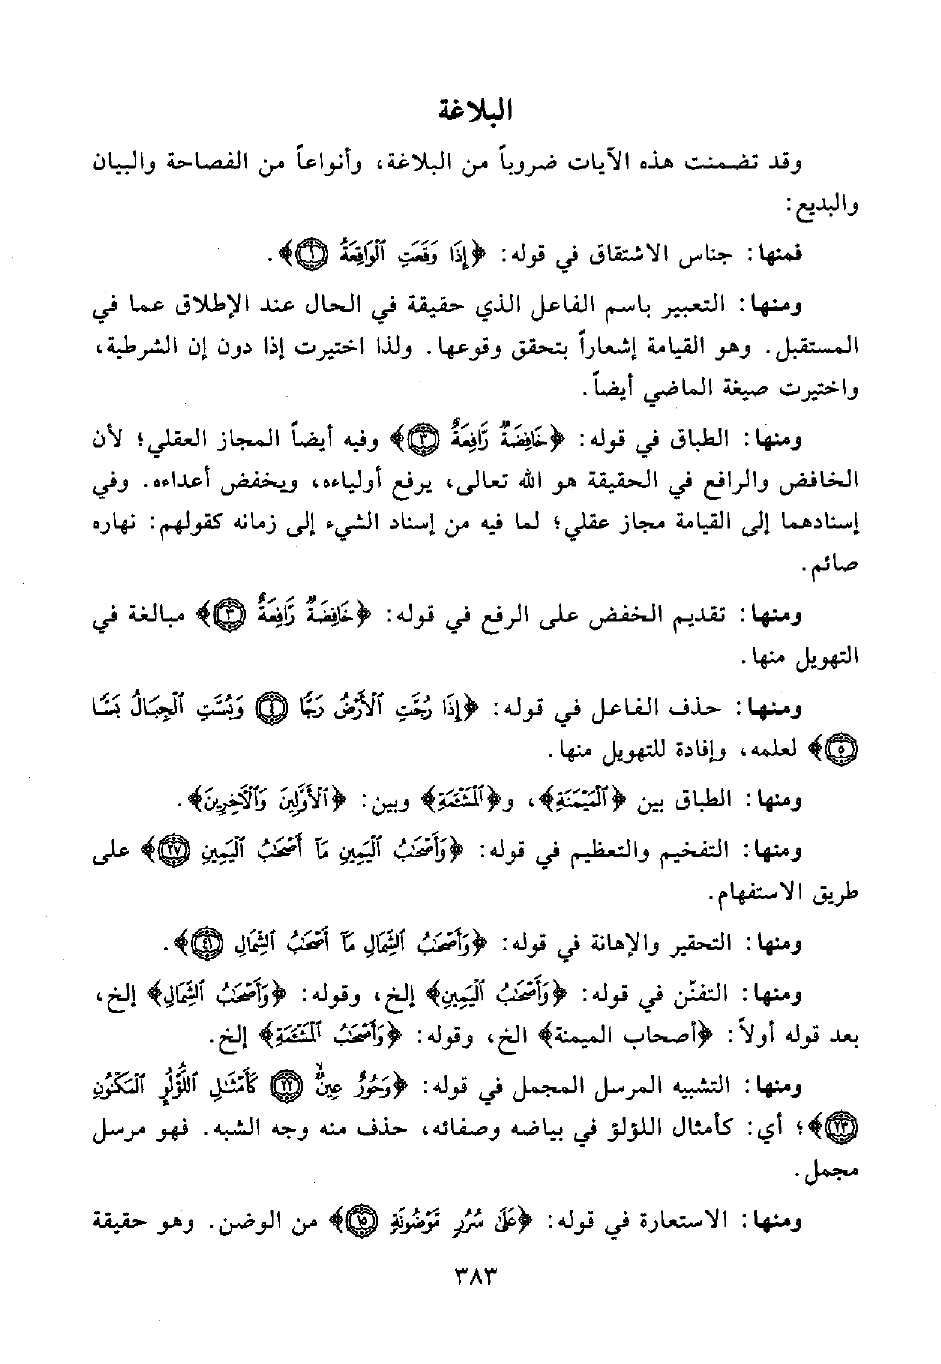 البلاغة
وقد تضمنت هذه الآيات ضروباً من البلاغة، وأنواعاً من الفصاحة والبيان
والبديع:
فمنها: جناس الاشتقاق في قوله: ﴿إِذَا وَقَعَتِ ٱلْوَاقِعَةُ ١﴾.
ومنها: التعبير باسم الفاعل الذي حقيقة في الحال عند الإطلاق عما في
المستقبل. وهو القيامة إشعاراً بتحقق وقوعها. ولذا اختيرت إذا دون إن الشرطية،
واختيرت صيغة الماضي أيضاً.
ومنها: الطباق في قوله: ﴿خَافِضَةٌ رَّافِعَةٌ ٣﴾ وفيه أيضاً المجاز العقلي؛ لأن
الخافض والرافع في الحقيقة هو الله تعالى، يرفع أولياءه، ويخفض أعداءه. وفي
إسنادهما إلى القيامة مجاز عقلي؛ لما فيه من إسناد الشيء إلى زمانه كقولهم: نهاره
صائم.
ومنها: تقديم الخفض على الرفع في قوله: ﴿خَافِضَةٌ رَّافِعَةٌ ٣﴾ مبالغة في
التهويل منها.
ومنها: حذف الفاعل في قوله: ﴿إِذَا رُجَّتِ ٱلْأَرْضُ رَجًّا ٤ وَبُسَّتِ ٱلْجِبَالُ بَسًّا
٥﴾ لعلمه، وإفادة للتهويل منها.
ومنها: الطباق بين ﴿ٱلْمَيْمَنَةِ﴾، و﴿ٱلْمَشْـَٔمَةِ﴾ وبين: ﴿ٱلْأَوَّلِينَ وَٱلْآخِرِينَ﴾.
ومنها: التفخيم والتعظيم في قوله: ﴿وَأَصْحَٰبُ ٱلْيَمِينِ مَآ أَصْحَٰبُ ٱلْيَمِينِ ٢٧﴾ على
طريق الاستفهام.
ومنها: التحقير والإهانة في قوله: ﴿وَأَصْحَٰبُ ٱلشِّمَالِ مَآ أَصْحَٰبُ ٱلشِّمَالِ ٤١﴾.
ومنها: التفنّن في قوله: ﴿وَأَصْحَٰبُ ٱلْيَمِينِ﴾ إلخ، وقوله: ﴿وَأَصْحَٰبُ ٱلشِّمَالِ﴾ إلخ،
بعد قوله أولاً: ﴿أصحاب الميمنة﴾ الخ، وقوله: ﴿وَأَصْحَٰبُ ٱلْمَشْـَٔمَةِ﴾ إلخ.
ومنها: التشبيه المرسل المجمل في قوله: ﴿وَحُورٌ عِينٌ ٢٢ كَأَمْثَٰلِ ٱللُّؤْلُؤِ ٱلْمَكْنُونِ
٢٣﴾؛ أي: كأمثال اللؤلؤ في بياضه وصفائه، حذف منه وجه الشبه. فهو مرسل
مجمل.
ومنها: الاستعارة في قوله: ﴿عَلَىٰ سُرُرٍ مَّوْضُونَةٍ ١٥﴾ من الوضن. وهو حقيقة
٣٨٣